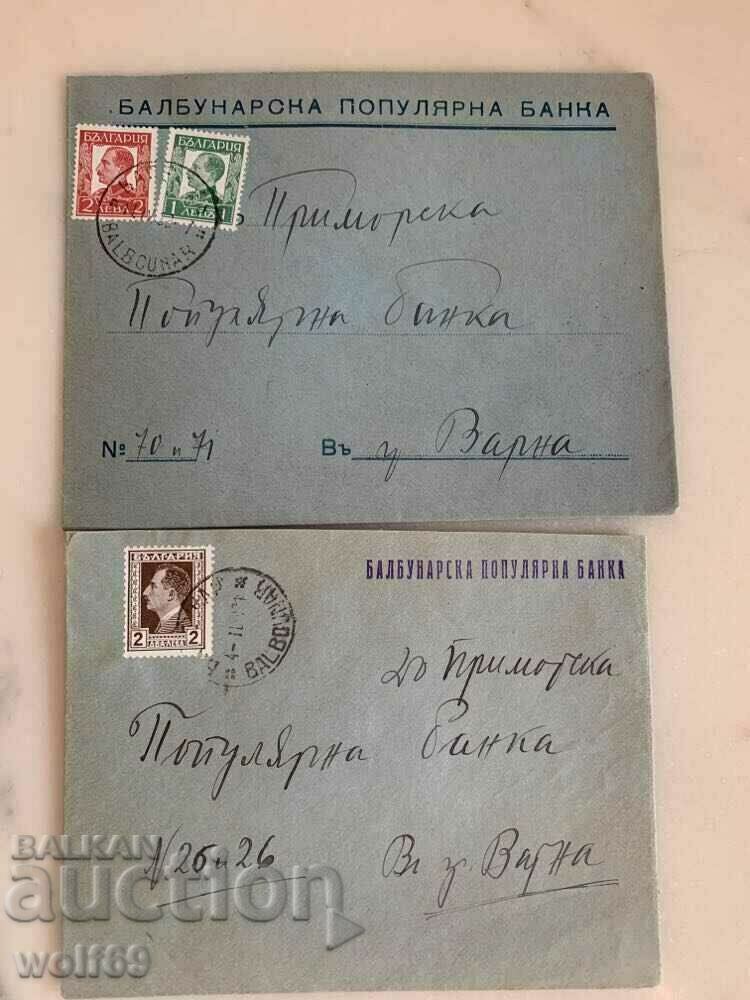 БАЛБУНАРСКА ПОПУЛЯРНА БАНКА
БЪЛГАРИЯ БЪЛГАРИЯ
2 ЛЕВА 2 1 ЛЕВЪ 1
BALBOUNAR
Приморска
Популярна банка
№ 70 и 71 Въ гр Варна
БАЛБУНАРСКА ПОПУЛЯРНА БАНКА
БЪЛГАРИЯ
2 ДВА ЛЕВА 2
BALBOUNAR
До Приморска
Популярна банка
N. 25 и 26 Въ гр. Варна
BALKAN
auction
wolf69